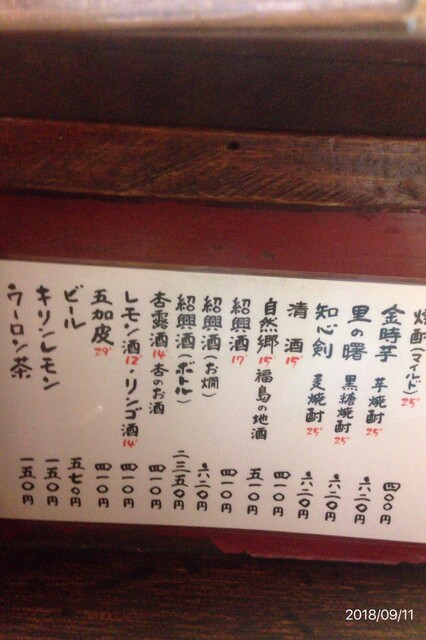 焼酎(マイルド) 25° 四〇〇円
金時芋 芋焼酎 25° 六二〇円
里の曙 黒糖焼酎 25° 六二〇円
知心剣 麦焼酎 25° 六二〇円
清酒 15° 四一〇円
自然郷 15° 福島の地酒 五一〇円
紹興酒 17° 四一〇円
紹興酒(お燗) 六二〇円
紹興酒(ボトル) 二三五〇円
杏露酒 14° 杏のお酒 四一〇円
レモン酒 12° リンゴ酒 14° 四一〇円
五加皮 29° 四一〇円
ビール 五七〇円
キリンレモン 一五〇円
ウーロン茶 一五〇円
2018/09/11